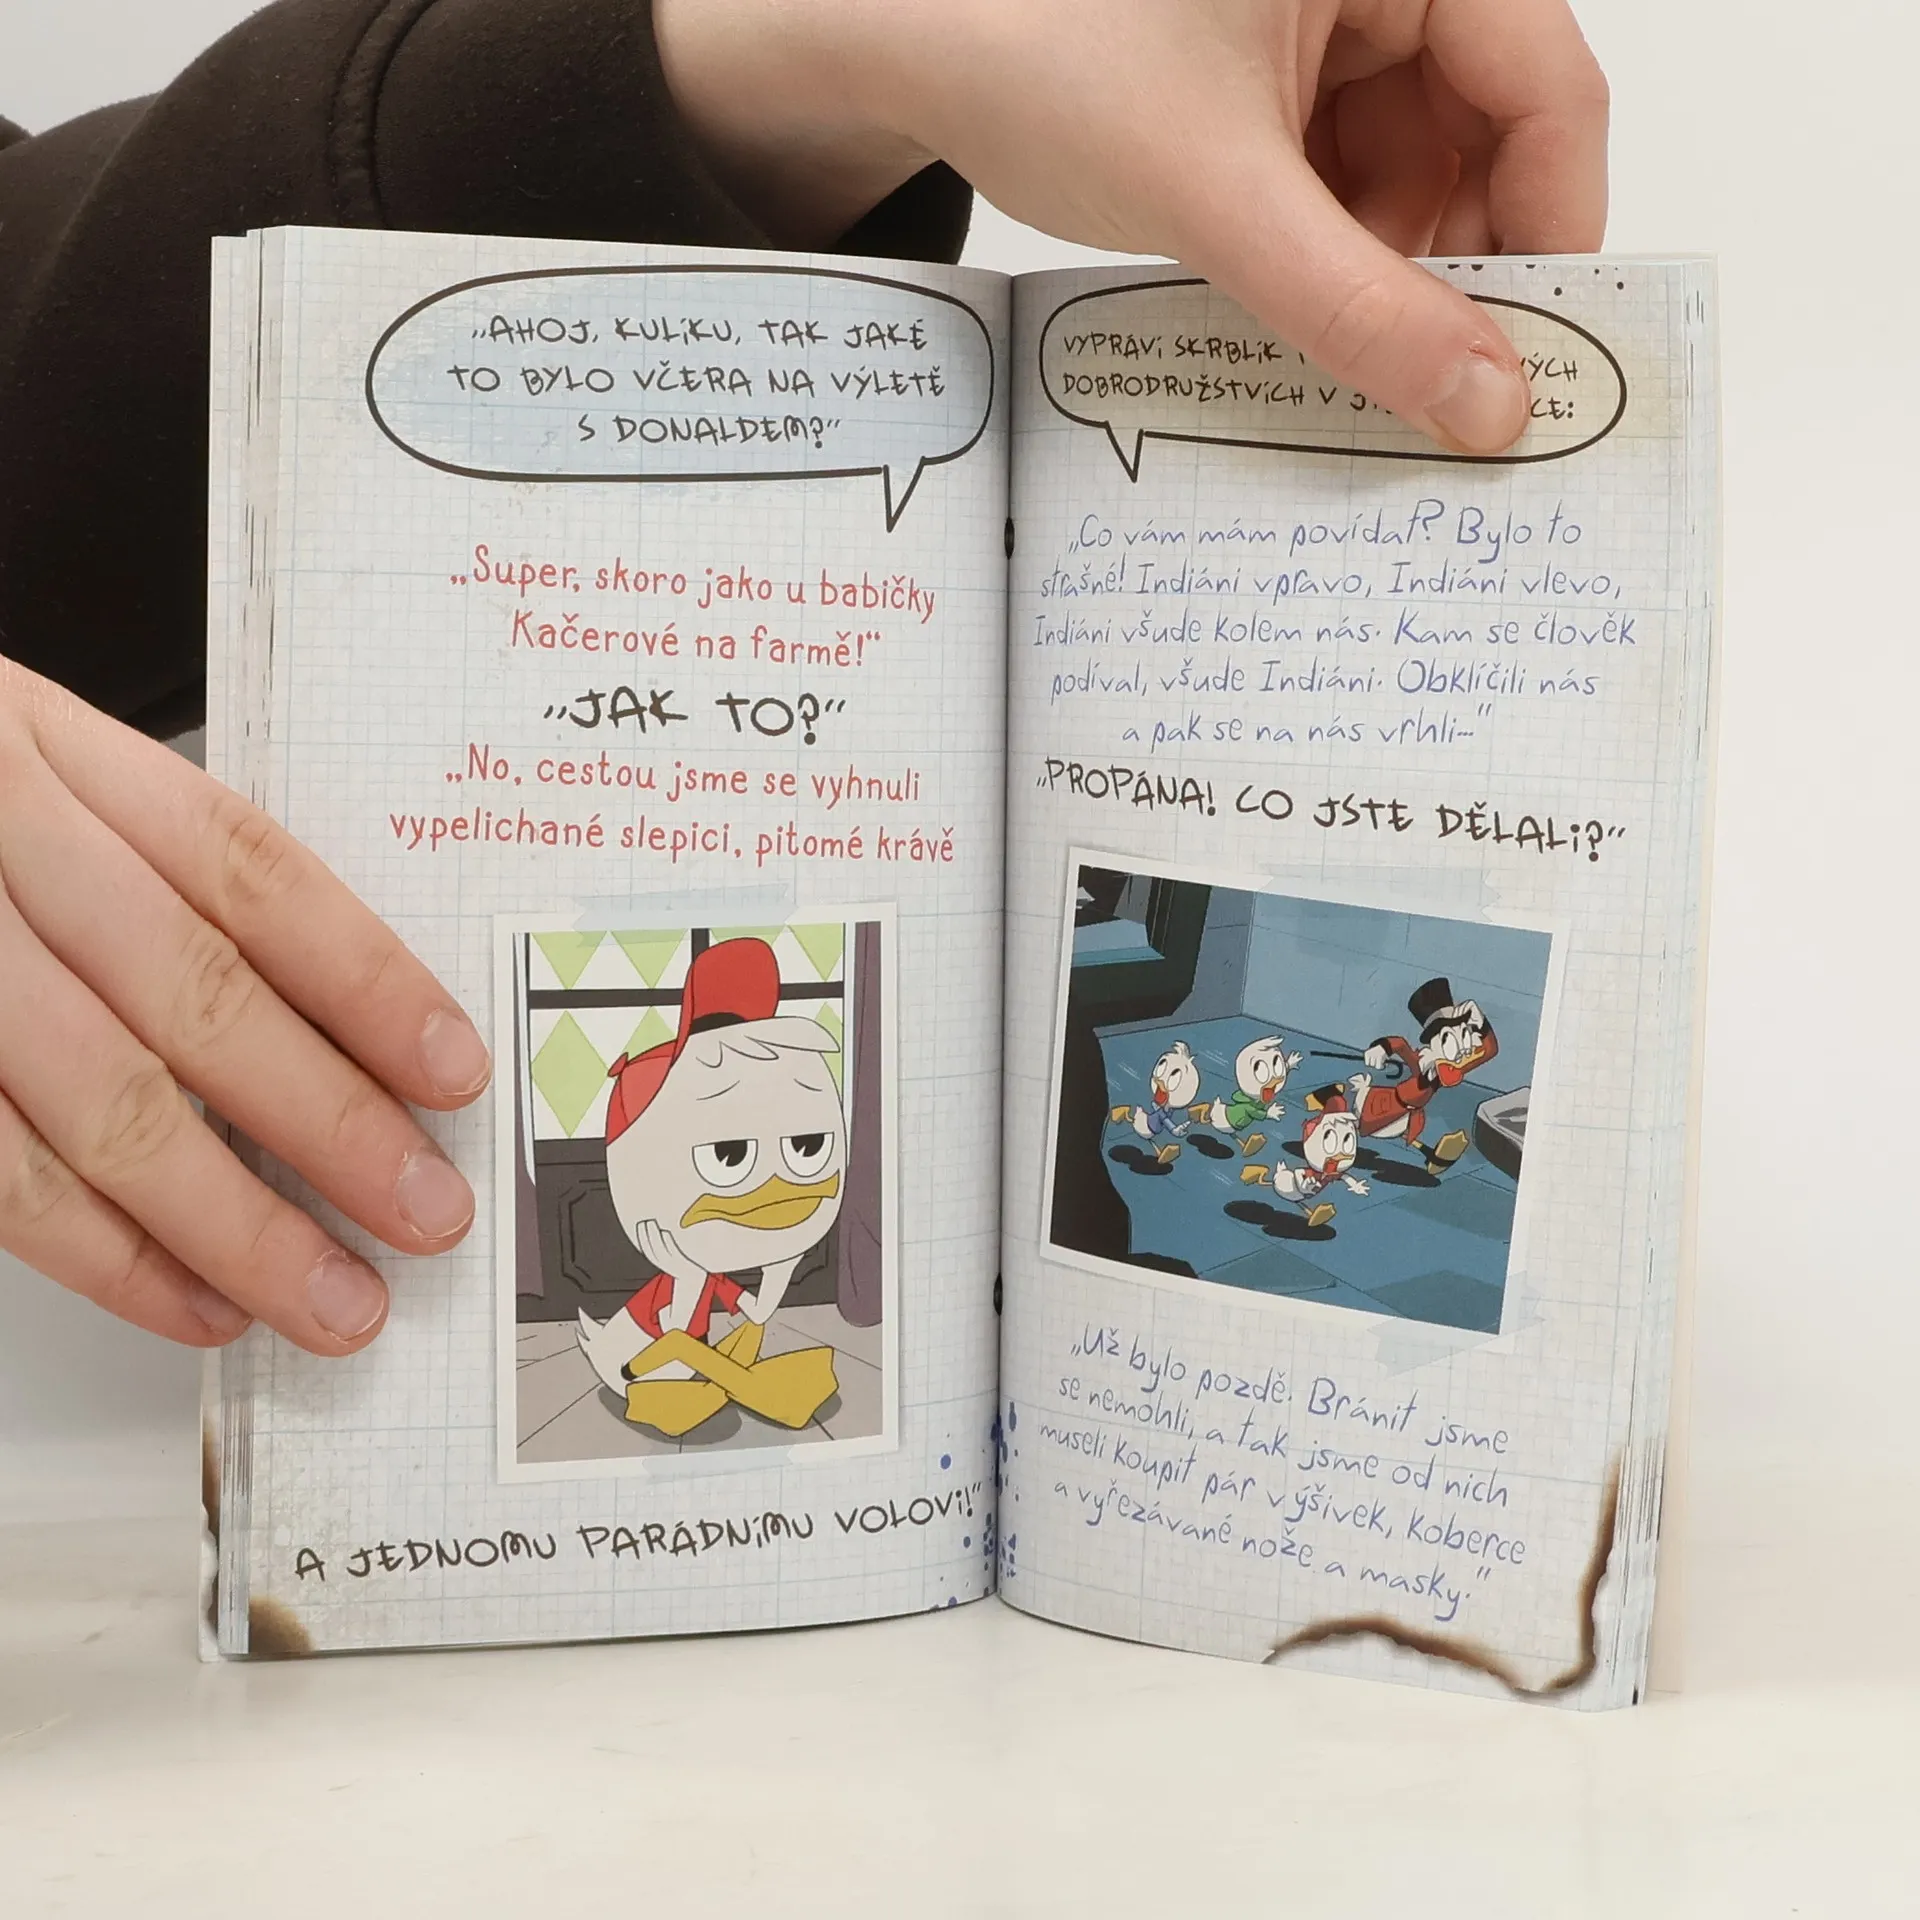 „AHOJ, KULÍKU, TAK JAKÉ
TO BYLO VČERA NA VÝLETĚ
S DONALDEM?“
„Super, skoro jako u babičky
Kačerové na farmě!“
„JAK TO?“
„No, cestou jsme se vyhnuli
vypelichané slepici, pitomé krávě
A JEDNOMU PARÁDNÍMU VOLOVI!“
VYPRÁVÍ SKRBLÍK
DOBRODRUŽSTVÍCH V
„Co vám mám povídat? Bylo to
strašné! Indiáni vpravo, Indiáni vlevo,
Indiáni všude kolem nás. Kam se člověk
podíval, všude Indiáni. Obklíčili nás
a pak se na nás vrhli...“
„PROPÁNA! CO JSTE DĚLALI?“
„Už bylo pozdě. Bránit jsme
se nemohli, a tak jsme od nich
museli koupit pár výšivek, koberce
a vyřezávané nože a masky.“